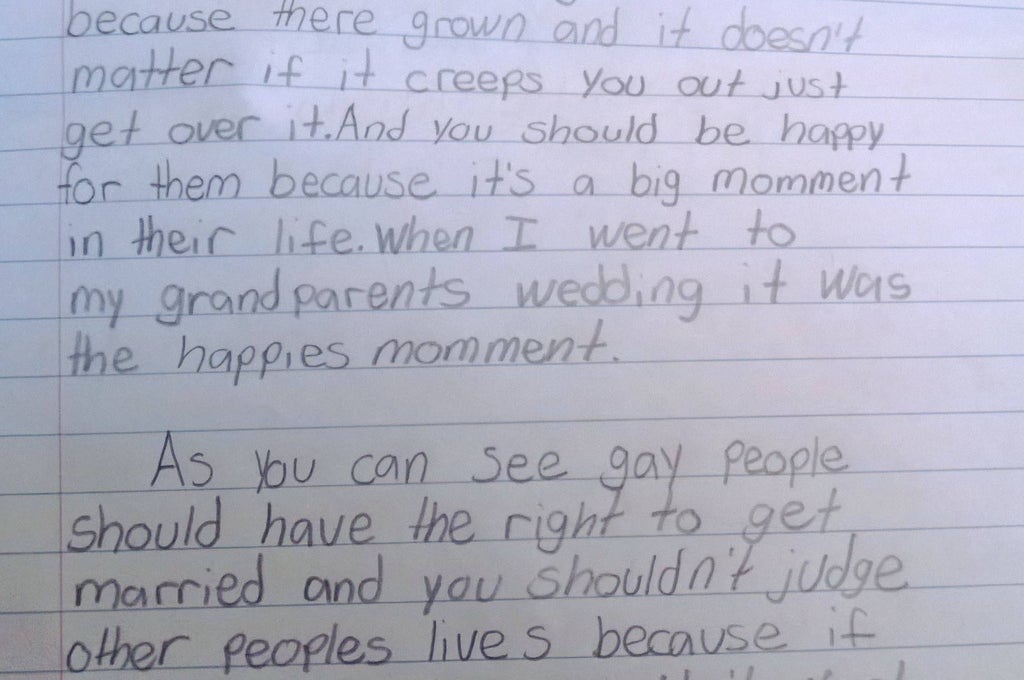 because there grown and it doesn't
matter if it creeps you out just
get over it. And you should be happy
for them because it's a big momment
in their life. When I went to
my grandparents wedding it was
the happies momment.
As you can see gay people
should have the right to get
married and you shouldn't judge
other peoples lives because if